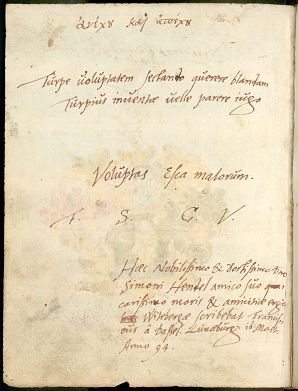 ἀνέχου καὶ ἀπέχου
Turpe voluptatem sectando quærere blandam
Turpius inventæ velle parere iugo
Voluptas Esca malorum.
T. S. C. V.
Hæc Nobilissimo & Doctissimo Dno
Simoni Hendel amico suo
carissimo moris & amicitiæ ergo
Witebergæ scribebat
à Dassel. Luneburg: 16 Mart.
Anno 94.